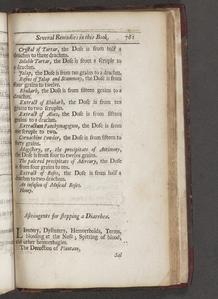 Several Remedies in this Book. 761
Crystal of Tartar, the Dose is from half a
drachm to three drachms.
Soluble Tartar, the Dose is from a scruple to
a drachm.
Jalap, the Dose is from ten grains to a drachm.
Rosins of Jalap and Scammony, the Dose is from
four grains to twelve.
Rhubarb, the Dose is from fifteen grains to a
drachm.
Extract of Rhubarb, the Dose is from ten
grains to two scruples.
Extract of Aloes, the Dose is from fifteen
grains to a drachm.
Extractum Panchymagogum, the Dose is from one
scruple to two.
Cornachine Powder, the Dose is from fifteen to
forty grains.
Magistery, or, the precipitate of Antimony,
the Dose is from four to twelve grains.
The Dose
is from four grains to ten.
Extract of Roses, the Dose is from half a
drachm to two drachms.
An infusion of Muscad Roses.
Honey.
Astringents for stopping a Diarrhœa.
Lientery, Dysentery, Hemorrhoids, Terms,
bleeding at the Nose; Spitting of blood,
and other hemorrhagies.
The Decoction of Plantane,
Sal